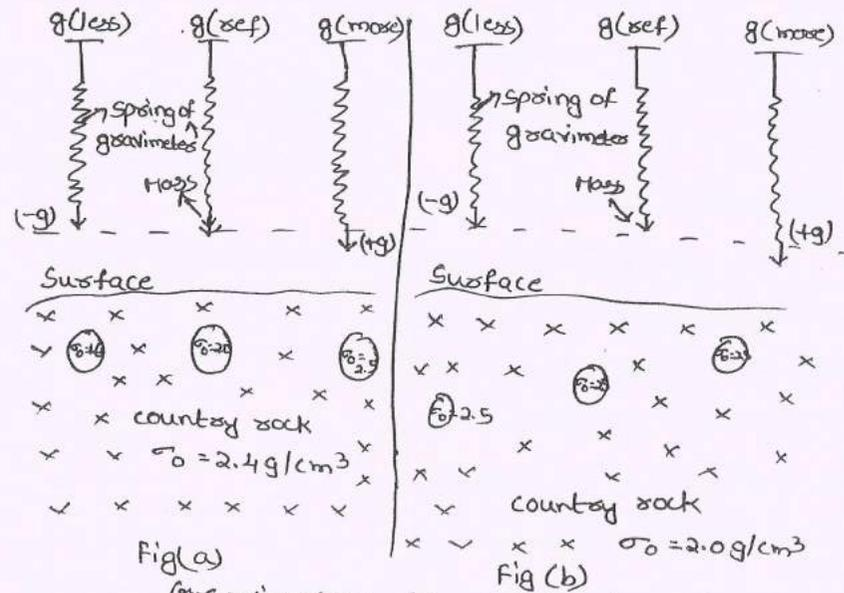 g(less) g(ref) g(more)
Spring of
gravimeter
Mass
(-g)
(+g)
Surface
σ0 = 2.5
country rock
σ0 = 2.4 g/cm3
Fig(a)
g(less) g(ref) g(more)
Spring of
gravimeter
Mass
(-g)
(+g)
Surface
σ0=2.5
country rock
σ0 = 2.0 g/cm3
Fig (b)